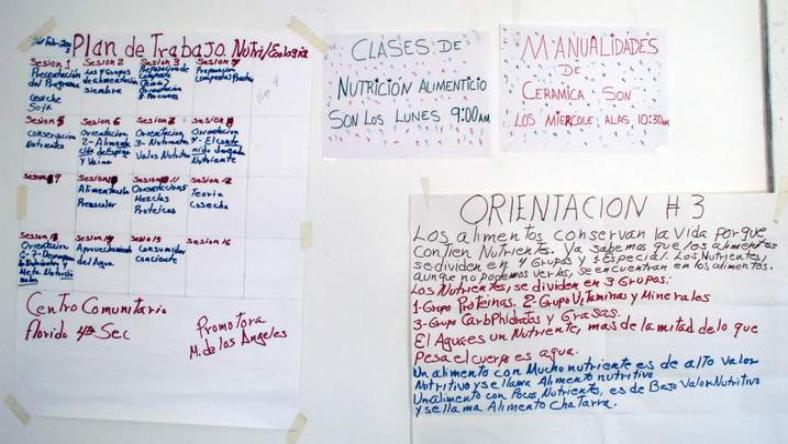 Plan de Trabajo. Nutri/Ecologia
Sesion 1
Presentación
del Programa
Ceviche
Soja
Sesion 2
Los 4 Grupos
de alimentación
siembra
Sesion 3
Preparación de
Composta
Orientación
Sesion 4
Preparación
Composta
Sesion 5
Conservacion
Nutrientes
Sesion 6
Orientacion
2- Alimentación
Sesion 7
Orientacion
3- Nutrientes
Valor Nutritivo
Sesion 8
Orientacion
4- El conte
nido de cada
Nutriente
Sesion 9
Sesion 10
Alimentación
Preescolar
Sesion 11
Orientacion 5
Mezclas
Proteicas
Sesion 12
Teoria
Cosecha
Sesion 13
Orientacion
6-7-
Sesion 14
Aprovechamiento
del Agua
Sesion 15
Consumidor
Conciente
Sesion 16
Centro Comunitario
Florido 4ta Sec
Promotora
M. de los Angeles
CLASES DE
NUTRICIÓN ALIMENTICIO
SON LOS LUNES 9:00AM
MANUALIDADES
DE
CERAMICA SON
LOS MIERCOLE ALAS 10:30AM
ORIENTACION # 3
Los alimentos conservan la Vida porque
Contien Nutrientes. Ya sabemos que los alimentos
se dividen en 4 Grupos y 1 Especial. Los Nutrientes,
aunque no podemos verlos, se encuentran en los alimentos.
Los Nutrientes, se dividen en 3 Grupos:
1-Grupo Proteinas. 2-Grupo Vitaminas y Minerales
3-Grupo Carbohidratos y Grasas.
El Agua es un Nutriente, mas de la mitad de lo que
Pesa el cuerpo es agua.
Un alimento con Mucho nutriente es de alto Valor
Nutritivo y se llama Alimento nutritivo
Un alimento con Pocos Nutrientes, es de Bajo Valor Nutritivo
y se llama Alimento Chatarra.